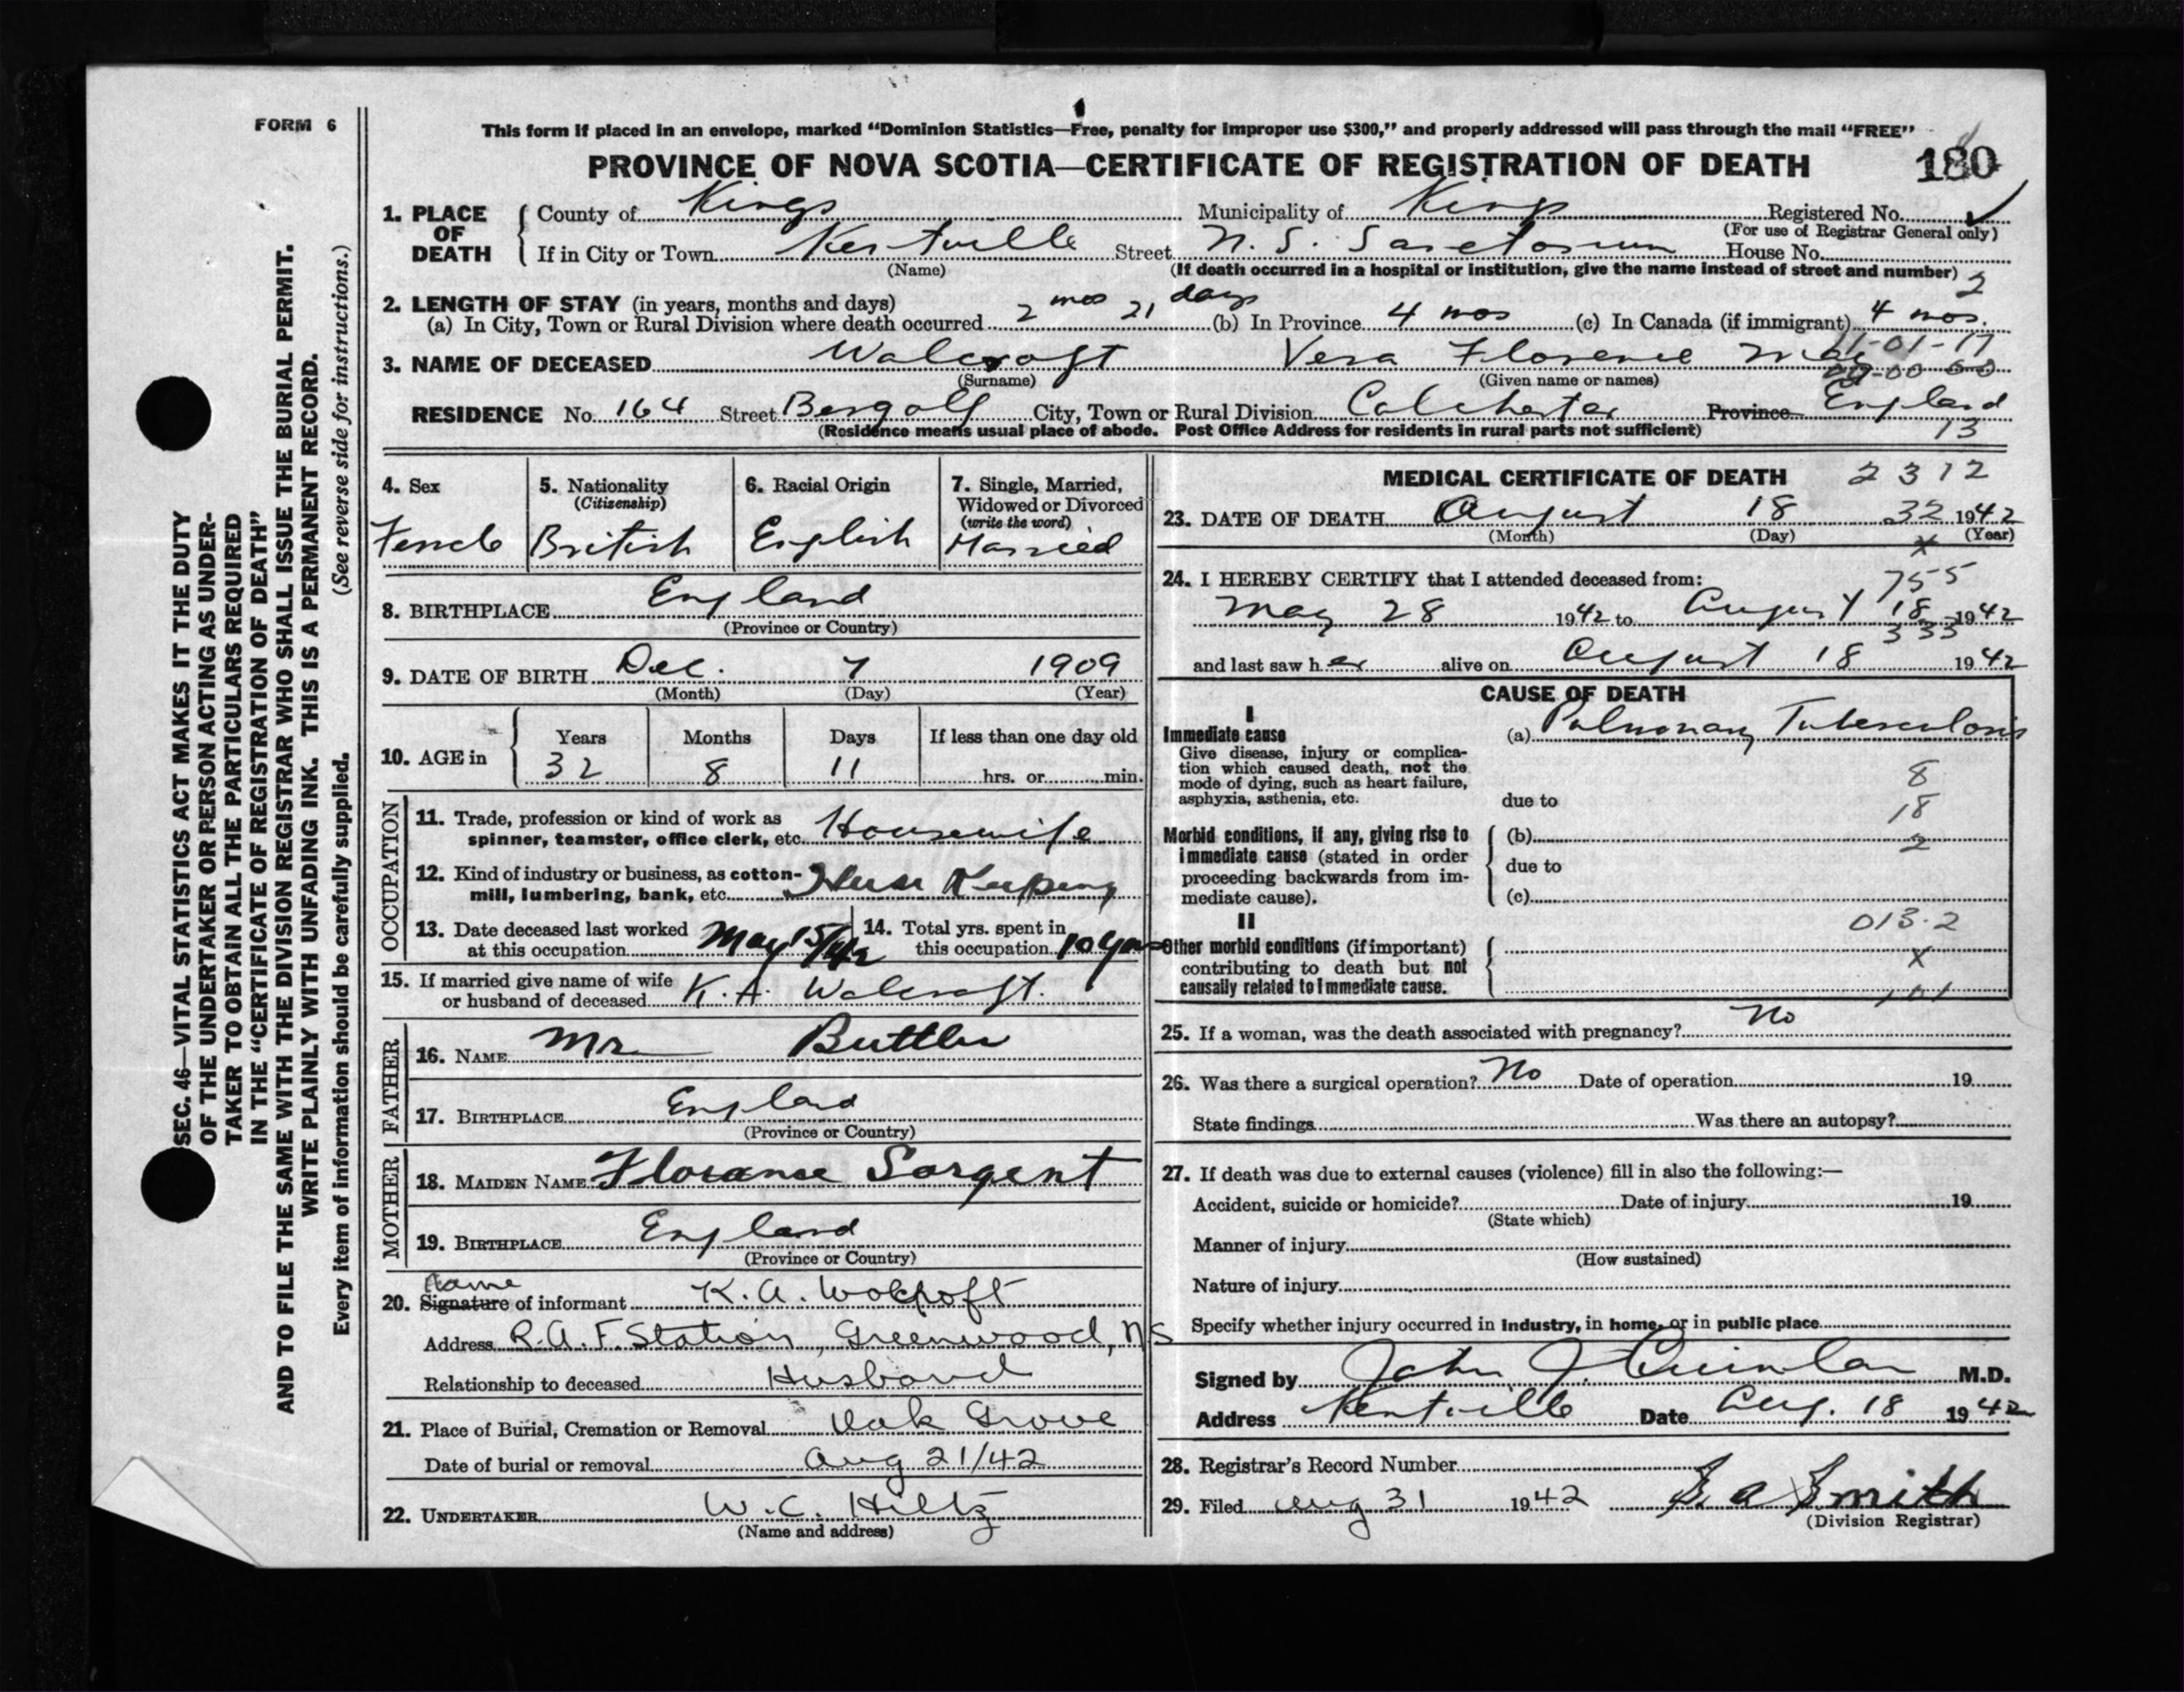 FORM 6
This form if placed in an envelope, marked "Dominion Statistics—Free, penalty for improper use $300," and properly addressed will pass through the mail "FREE"
PROVINCE OF NOVA SCOTIA—CERTIFICATE OF REGISTRATION OF DEATH 180
SEC. 46—VITAL STATISTICS ACT MAKES IT THE DUTY
OF THE UNDERTAKER OR PERSON ACTING AS UNDER-
TAKER TO OBTAIN ALL THE PARTICULARS REQUIRED
IN THE "CERTIFICATE OF REGISTRATION OF DEATH"
AND TO FILE THE SAME WITH THE DIVISION REGISTRAR WHO SHALL ISSUE THE BURIAL PERMIT.
WRITE PLAINLY WITH UNFADING INK. THIS IS A PERMANENT RECORD.
Every item of information should be carefully supplied. (See reverse side for instructions.)
1. PLACE OF DEATH County of Kings Municipality of Kings Registered No.
(For use of Registrar General only)
If in City or Town Kentville Street N. S. Sanatorium House No.
(Name) (If death occurred in a hospital or institution, give the name instead of street and number) 2
2. LENGTH OF STAY (in years, months and days)
(a) In City, Town or Rural Division where death occurred 2 mos 21 days (b) In Province 4 mos (c) In Canada (if immigrant) 4 mos.
11-01-17
3. NAME OF DECEASED Walcroft Vera Florence Mae
(Surname) (Given name or names) 00-00-00
RESIDENCE No. 164 Street City, Town or Rural Division Colchester Province England
(Residence means usual place of abode. Post Office Address for residents in rural parts not sufficient) 13
4. Sex 5. Nationality 6. Racial Origin 7. Single, Married,
(Citizenship) Widowed or Divorced
(write the word)
Female British English Married
8. BIRTHPLACE England
(Province or Country)
9. DATE OF BIRTH Dec. 7 1909
(Month) (Day) (Year)
10. AGE in Years Months Days If less than one day old
32 8 11 hrs. or min.
OCCUPATION
11. Trade, profession or kind of work as
spinner, teamster, office clerk, etc. Housewife
12. Kind of industry or business, as cotton-
mill, lumbering, bank, etc. House Keeping
13. Date deceased last worked
at this occupation May 15/42
14. Total yrs. spent in
this occupation 10 years
15. If married give name of wife
or husband of deceased K. A. Walcroft.
FATHER
16. NAME Mr Buttler
17. BIRTHPLACE England
(Province or Country)
MOTHER
18. MAIDEN NAME Florance Sargent
19. BIRTHPLACE England
(Province or Country)
Name
20. Signature of informant K. A. Wolcroft
Address R.A.F. Station, Greenwood, NS
Relationship to deceased Husband
21. Place of Burial, Cremation or Removal Oak Grove
Date of burial or removal Aug 21/42
22. UNDERTAKER W. C. Hiltz
(Name and address)
MEDICAL CERTIFICATE OF DEATH 2312
23. DATE OF DEATH August 18 32 1942
(Month) (Day) (Year)
x
24. I HEREBY CERTIFY that I attended deceased from: 755
May 28 1942 to August 18 1942
333
and last saw her alive on August 18 1942
CAUSE OF DEATH
I
Immediate cause (a) Pulmonary Tuberculosis
Give disease, injury or complica-
tion which caused death, not the
mode of dying, such as heart failure,
asphyxia, asthenia, etc.
8
due to
18
Morbid conditions, if any, giving rise to (b)
2
immediate cause (stated in order due to
proceeding backwards from im-
mediate cause). (c)
II 013.2
Other morbid conditions (if important)
contributing to death but not x
causally related to immediate cause.
101
25. If a woman, was the death associated with pregnancy? No
26. Was there a surgical operation? No Date of operation 19
State findings Was there an autopsy?
27. If death was due to external causes (violence) fill in also the following:—
Accident, suicide or homicide? Date of injury 19
(State which)
Manner of injury
(How sustained)
Nature of injury
Specify whether injury occurred in industry, in home, or in public place
Signed by John J. Quinlan M.D.
Address Kentville Date Aug. 18 1942
28. Registrar's Record Number
29. Filed Aug 31 1942 Smith
(Division Registrar)